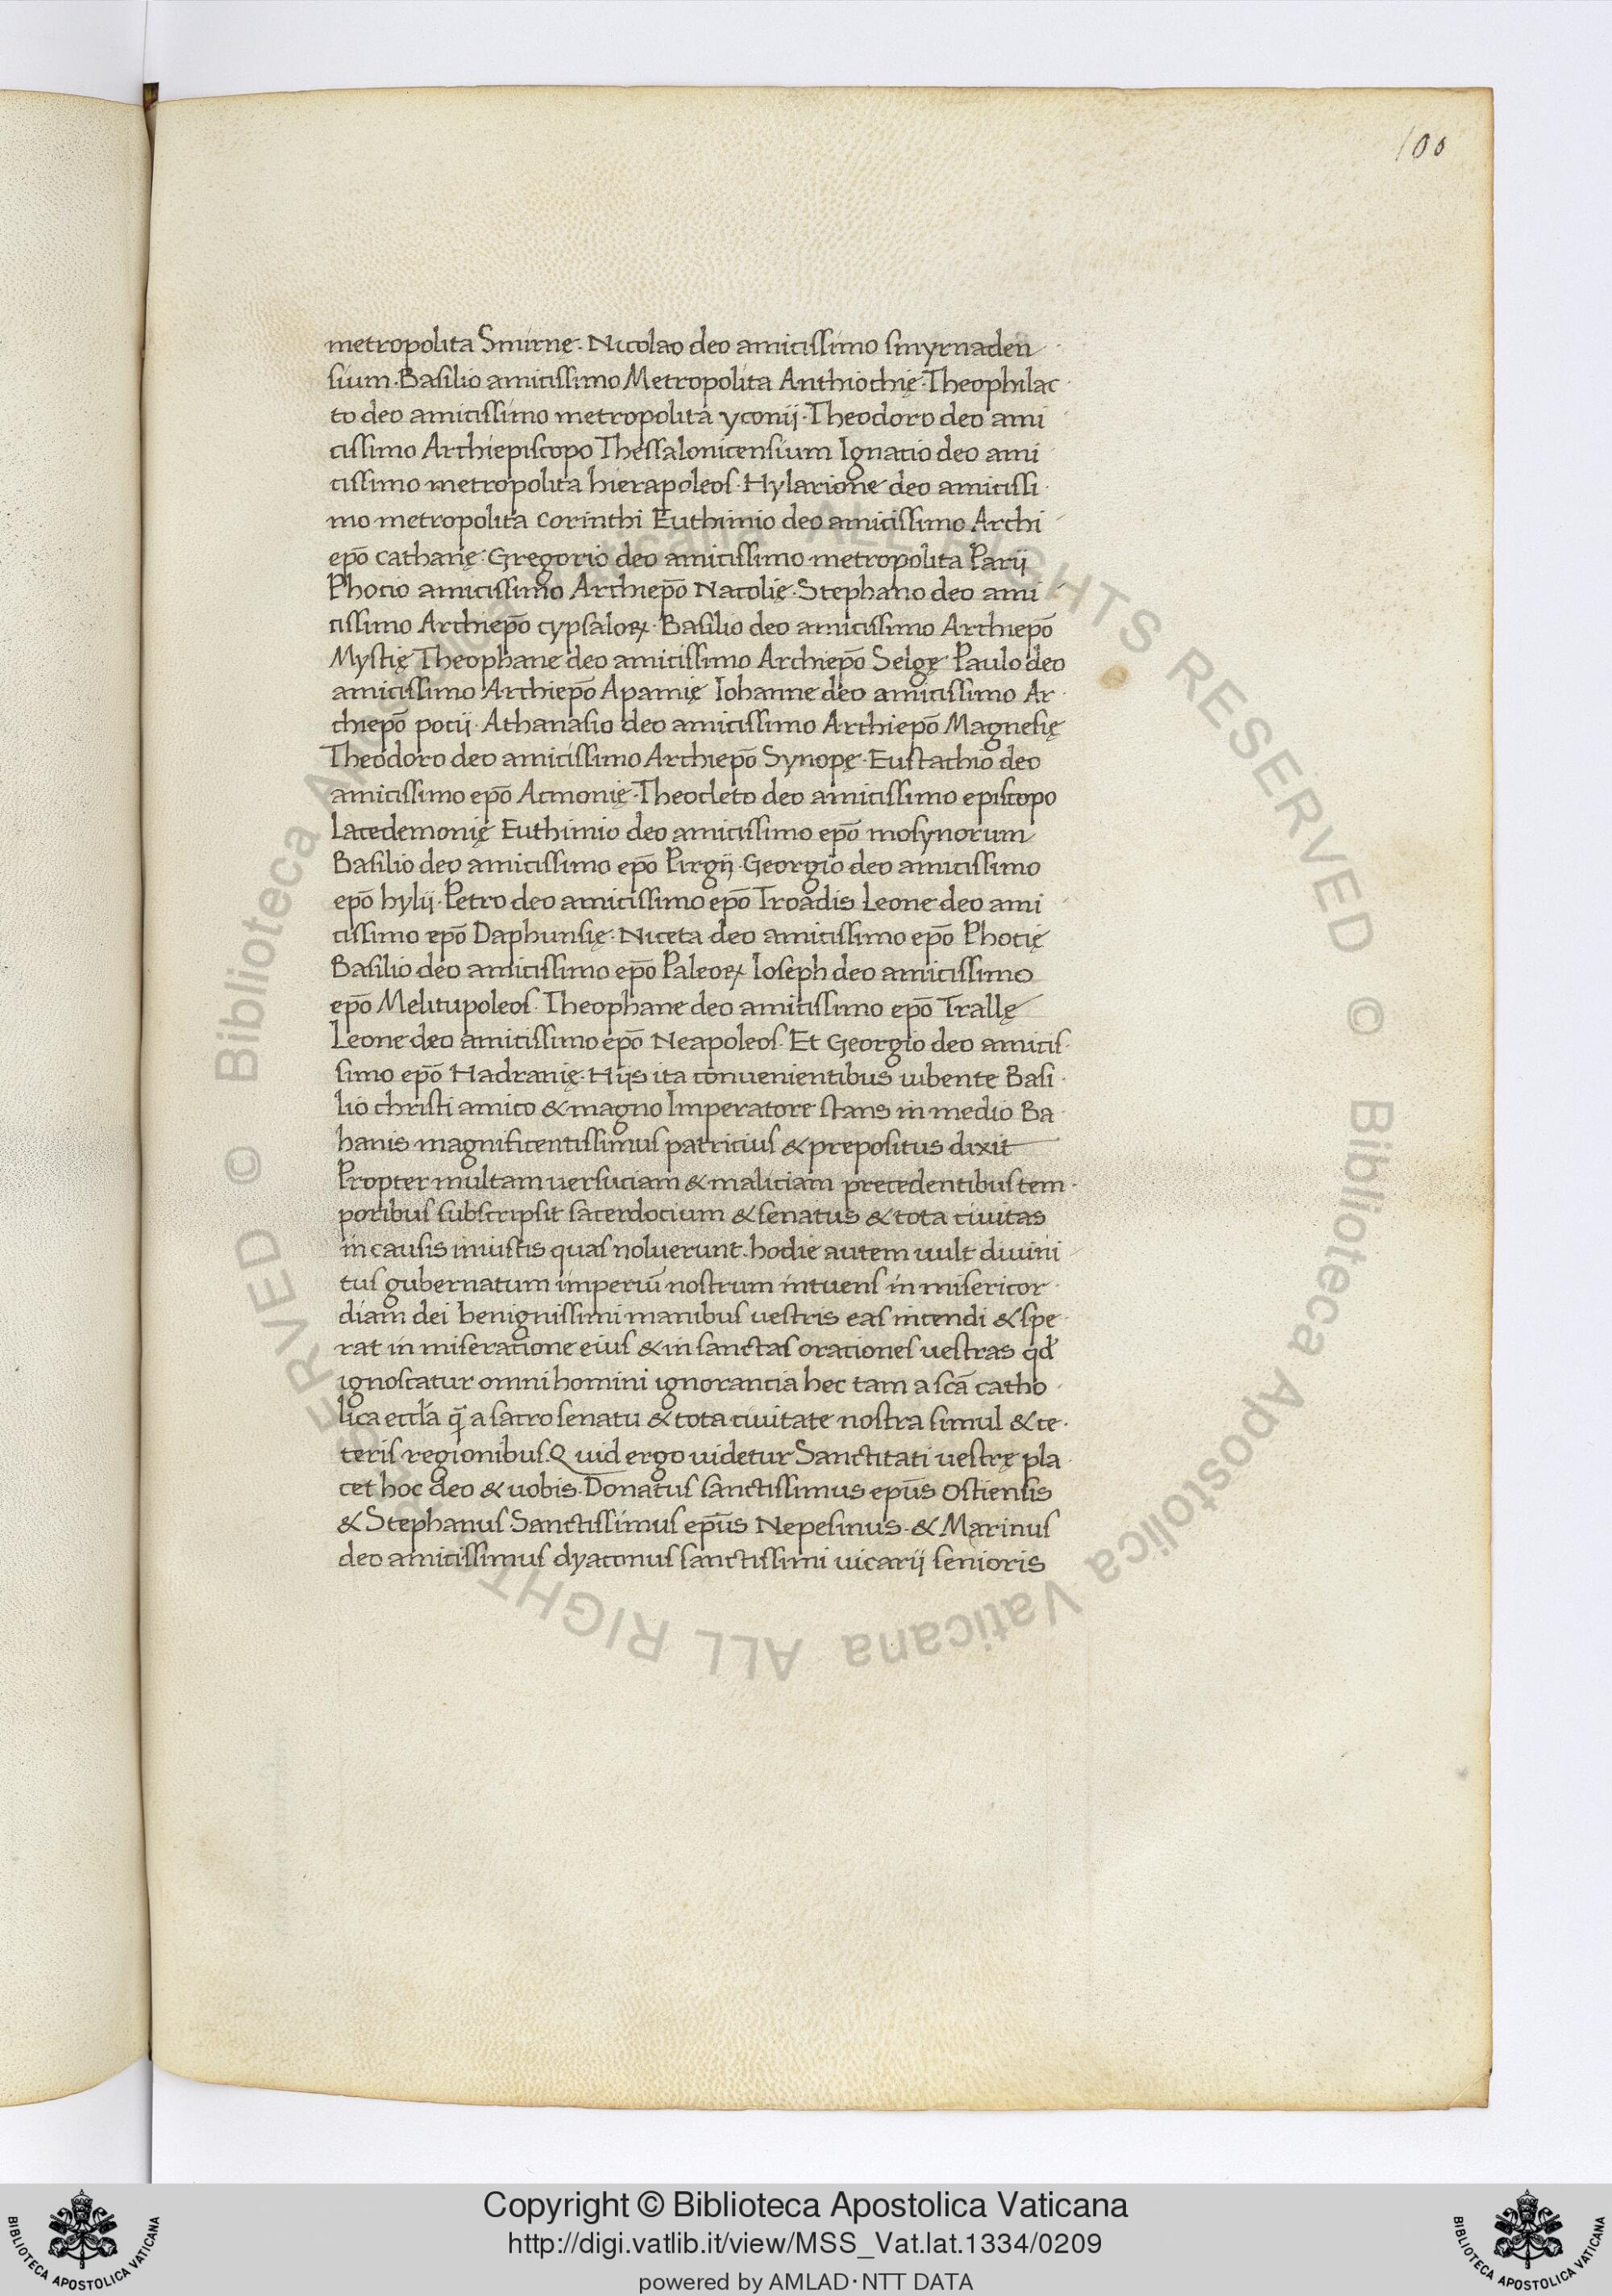 100
metropolita Smirnę. Nicolao deo amicissimo smyrnaden
sium. Basilio amicissimo Metropolita Anthiochię. Theophilac
to deo amicissimo metropolita yconij. Theodoro deo ami
cissimo Archiepiscopo Thessalonicensium Ignatio deo ami
cissimo metropolita hierapoleos. Hylarione deo amicissi
mo metropolita corinthi Euthimio deo amicissimo Archi
ep̄o cathanę. Gregorio deo amicissimo metropolita Parij
Photio amicissimo Archiep̄o Nacolię. Stephano deo ami
cissimo Archiep̄o cypsaloꝝ. Basilio deo amicissimo Archiep̄o
Mystię Theophane deo amicissimo Archiep̄o Selgę. Paulo deo
amicissimo Archiep̄o Apamię Iohanne deo amicissimo Ar
chiep̄o pocij. Athanasio deo amicissimo Archiep̄o Magnesię
Theodoro deo amicissimo Archiep̄o Synopę. Eustachio deo
amicissimo ep̄o Acmonię. Theocleto deo amicissimo episcopo
Lacedemonię Euthimio deo amicissimo ep̄o mosynorum
Basilio deo amicissimo ep̄o Pirgij. Georgio deo amicissimo
ep̄o hylij. Petro deo amicissimo ep̄o Troadis Leone deo ami
cissimo ep̄o Daphunsię. Niceta deo amicissimo ep̄o Photię
Basilio deo amicissimo ep̄o Paleoꝝ Ioseph deo amicissimo
ep̄o Melitupoleos. Theophane deo amicissimo ep̄o Trallę
Leone deo amicissimo ep̄o Neapoleos. Et Georgio deo amicis
simo ep̄o Hadranię. Hijs ita convenientibus iubente Basi
lio christi amico & magno Imperatore stans in medio Ba
hanis magnificentissimus patricius & prepositus dixit
Propter multam uersuciam & maliciam precedentibus tem
poribus subscripsit sacerdocium & senatus & tota civitas
in causis iniustis quas noluerunt. hodie autem uult divini
tus gubernatum imperiū nostrum intuens in misericor
diam dei benignissimi manibus uestris eas incendi & spe
rat in miseratione eius & in sanctas orationes uestras qđ
ignoscatur omni homini ignorancia hec tam a scā catho
lica eccl̄a q̄ a sacro senatu & tota civitate nostra simul & ce
teris regionibus. Quid ergo uidetur Sanctitati uestrę pla
cet hoc deo & uobis. Donatus sanctissimus ep̄us Ostiensis
& Stephanus Sanctissimus ep̄us Nepesinus. & Marinus
deo amicissimus dyaconus sanctissimi uicarij senioris
© Biblioteca Apostolica Vaticana ALL RIGHTS RESERVED
© Biblioteca Apostolica Vaticana ALL RIGHTS RESERVED
Copyright © Biblioteca Apostolica Vaticana
http://digi.vatlib.it/view/MSS_Vat.lat.1334/0209
powered by AMLAD·NTT DATA
BIBLIOTECA APOSTOLICA VATICANA
BIBLIOTECA APOSTOLICA VATICANA